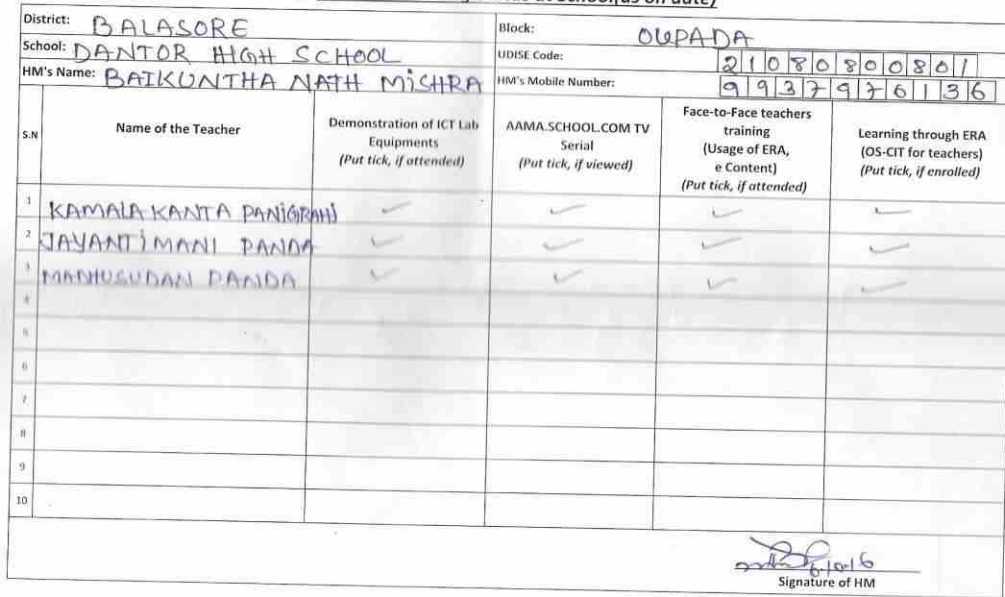 District: BALASORE
Block: OUPADA
School: DANTOR HIGH SCHOOL
UDISE Code: 21080800801
HM's Name: BAIKUNTHA NATH MISHRA
HM's Mobile Number: 9937976136
S.N
Name of the Teacher
Demonstration of ICT Lab
Equipments
(Put tick, if attended)
AAMA.SCHOOL.COM TV
Serial
(Put tick, if viewed)
Face-to-Face teachers
training
(Usage of ERA,
e Content)
(Put tick, if attended)
Learning through ERA
(OS-CIT for teachers)
(Put tick, if enrolled)
1 KAMALA KANTA PANIGRAHI ✓ ✓ ✓ ✓
2 JAYANTIMANI PANDA ✓ ✓ ✓ ✓
3 MADHUSUDAN PANDA ✓ ✓ ✓ ✓
4
5
6
7
8
9
10
Signature of HM